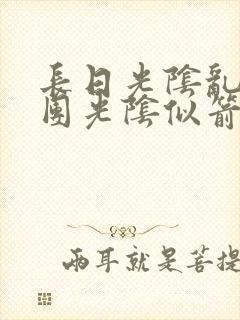 長日光陰亂
團光陰似箭
兩耳就是菩提